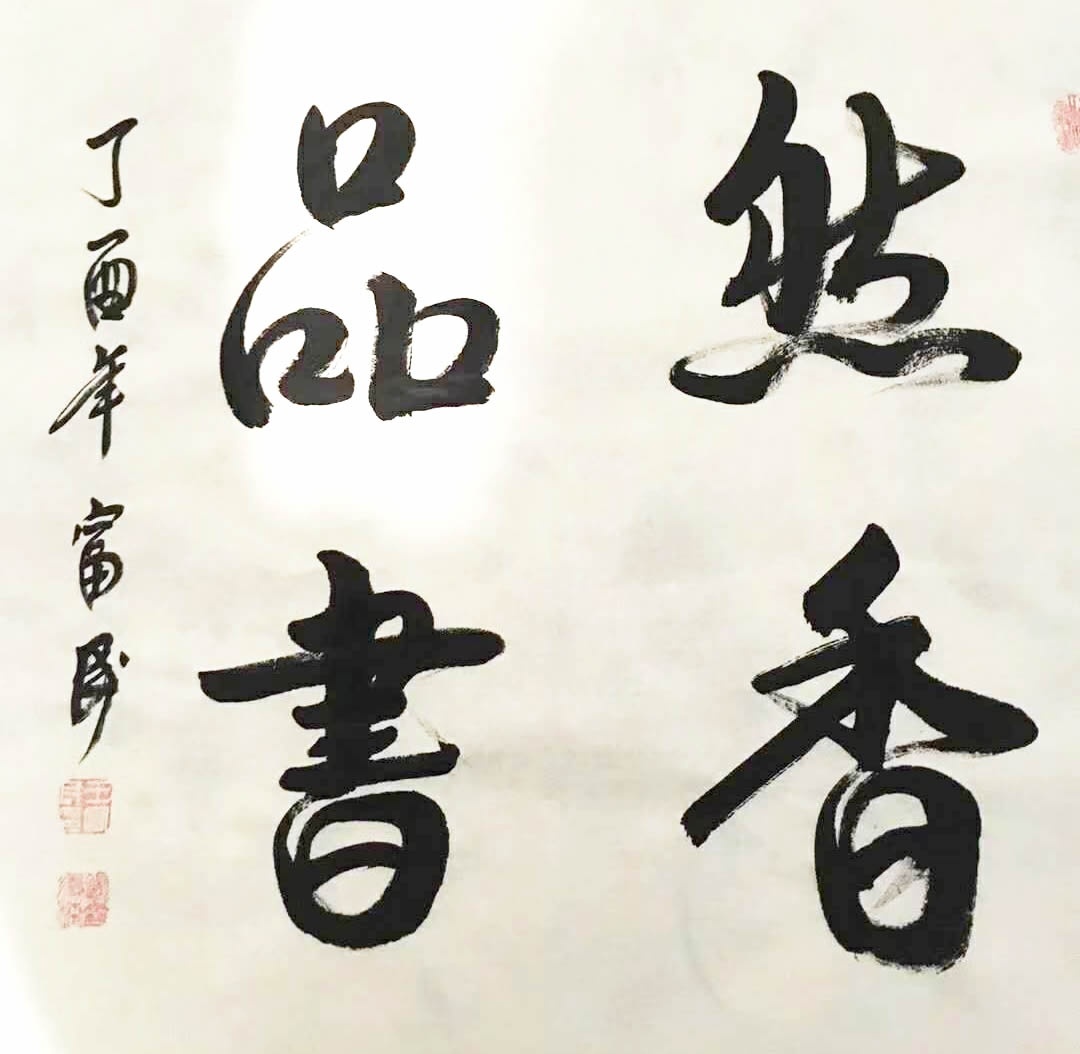 然香
品書
丁酉年富民